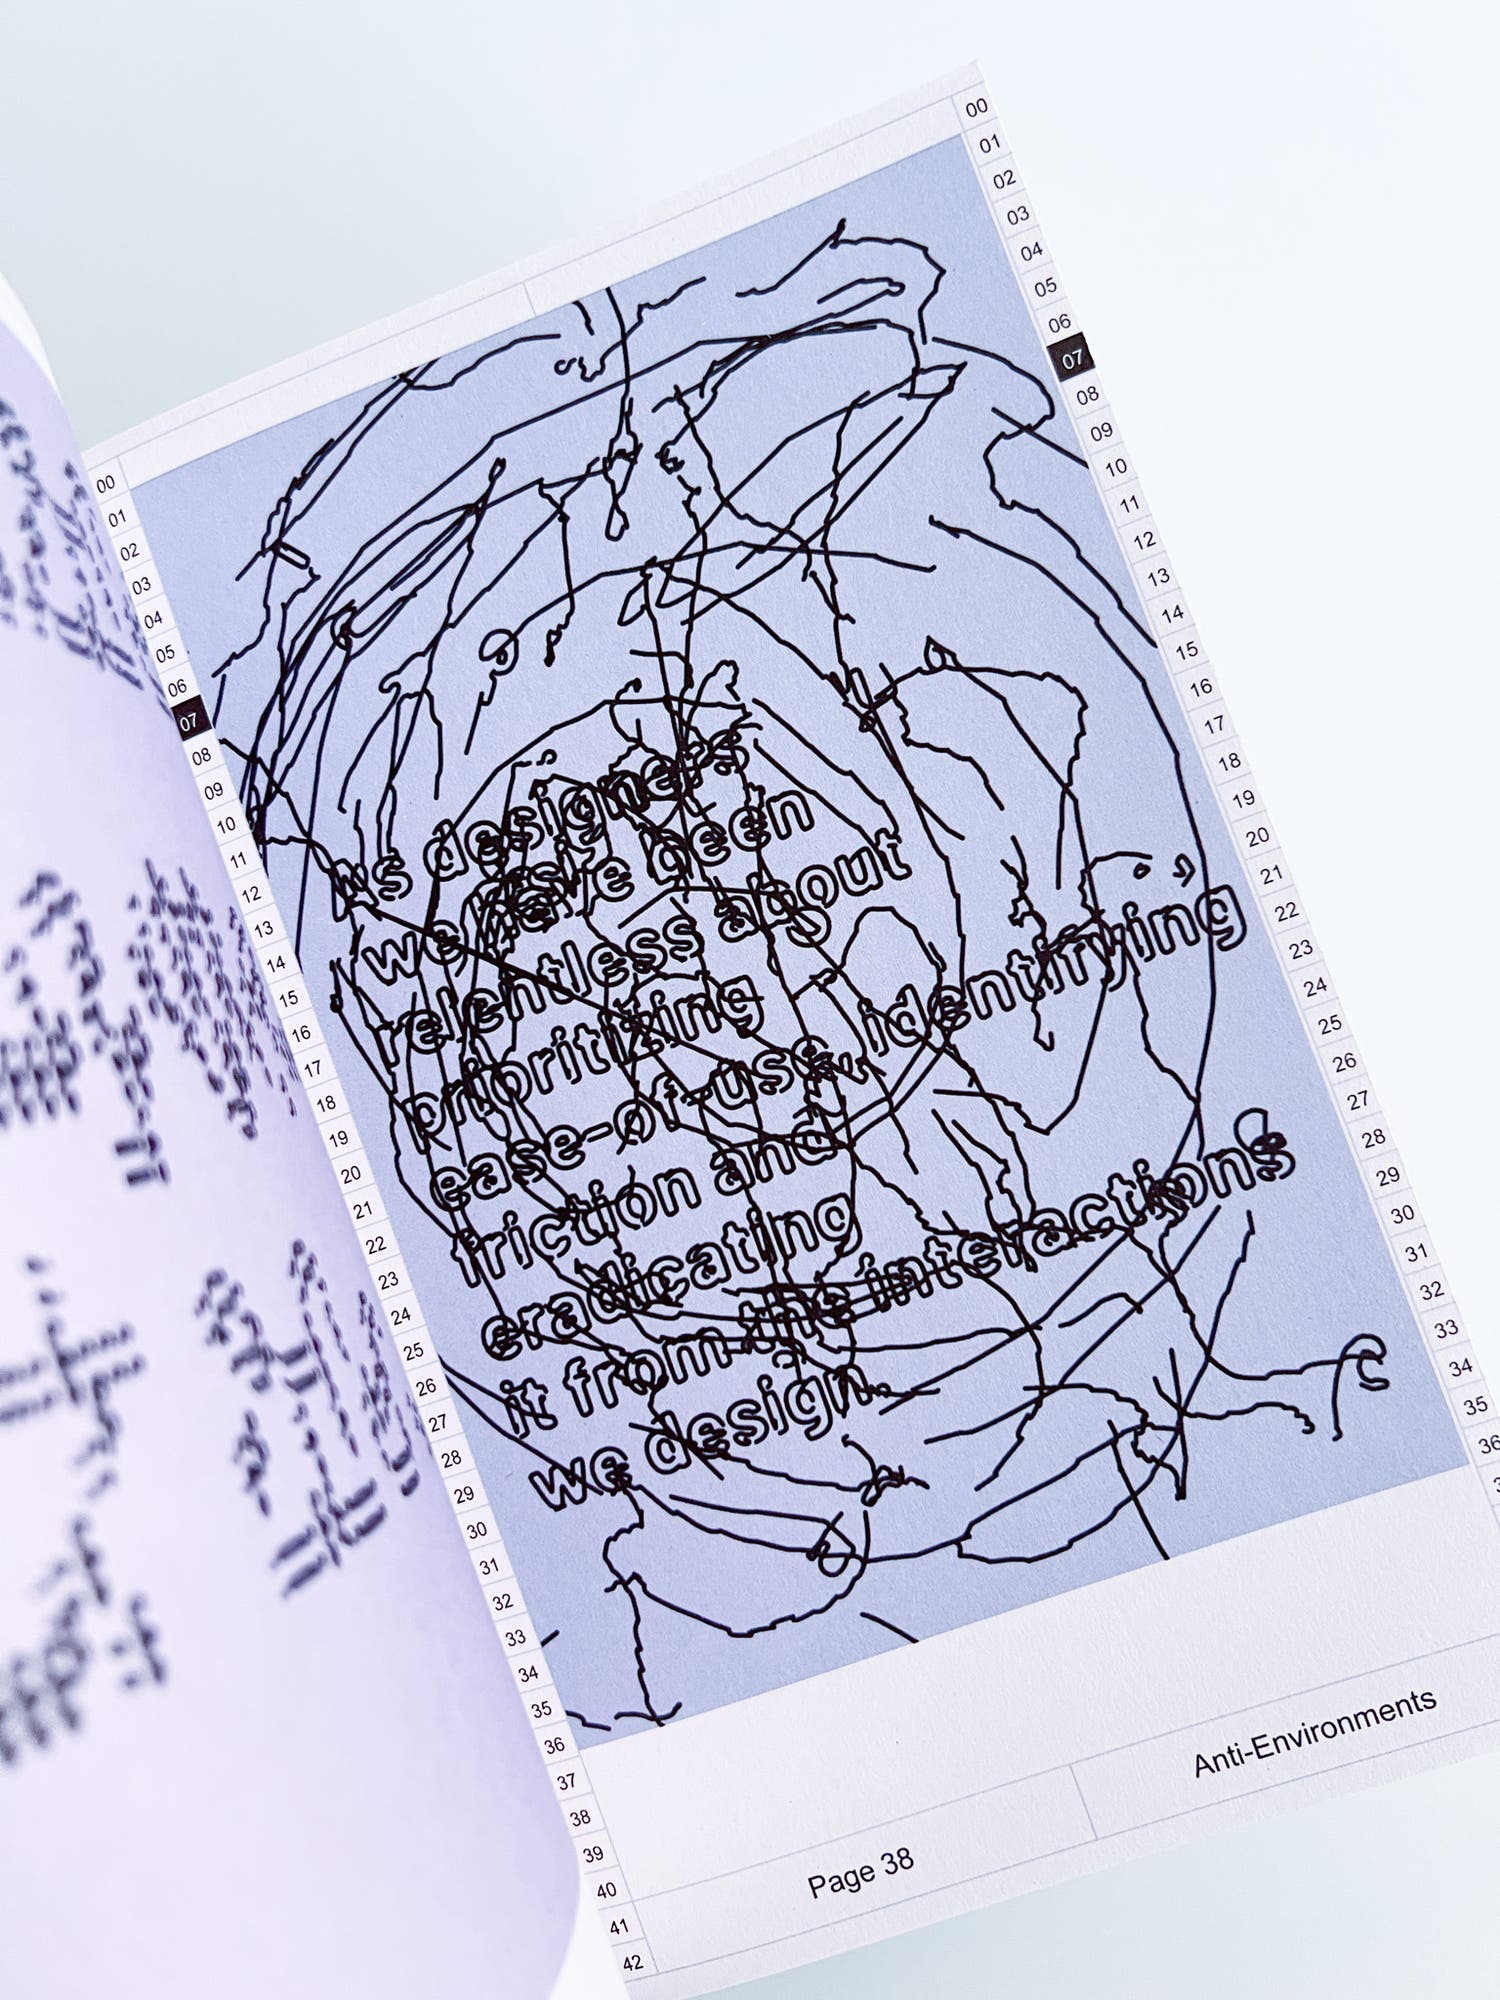 As designers
we have been
relentless about
prioritizing
ease-of-use, identifying
friction and
eradicating
it from the interactions
we design.
00
01
02
03
04
05
06
07
08
09
10
11
12
13
14
15
16
17
18
19
20
21
22
23
24
25
26
27
28
29
30
31
32
33
34
35
36
37
38
39
40
41
42
00
01
02
03
04
05
06
07
08
09
10
11
12
13
14
15
16
17
18
19
20
21
22
23
24
25
26
27
28
29
30
31
32
33
34
35
36
Page 38
Anti-Environments